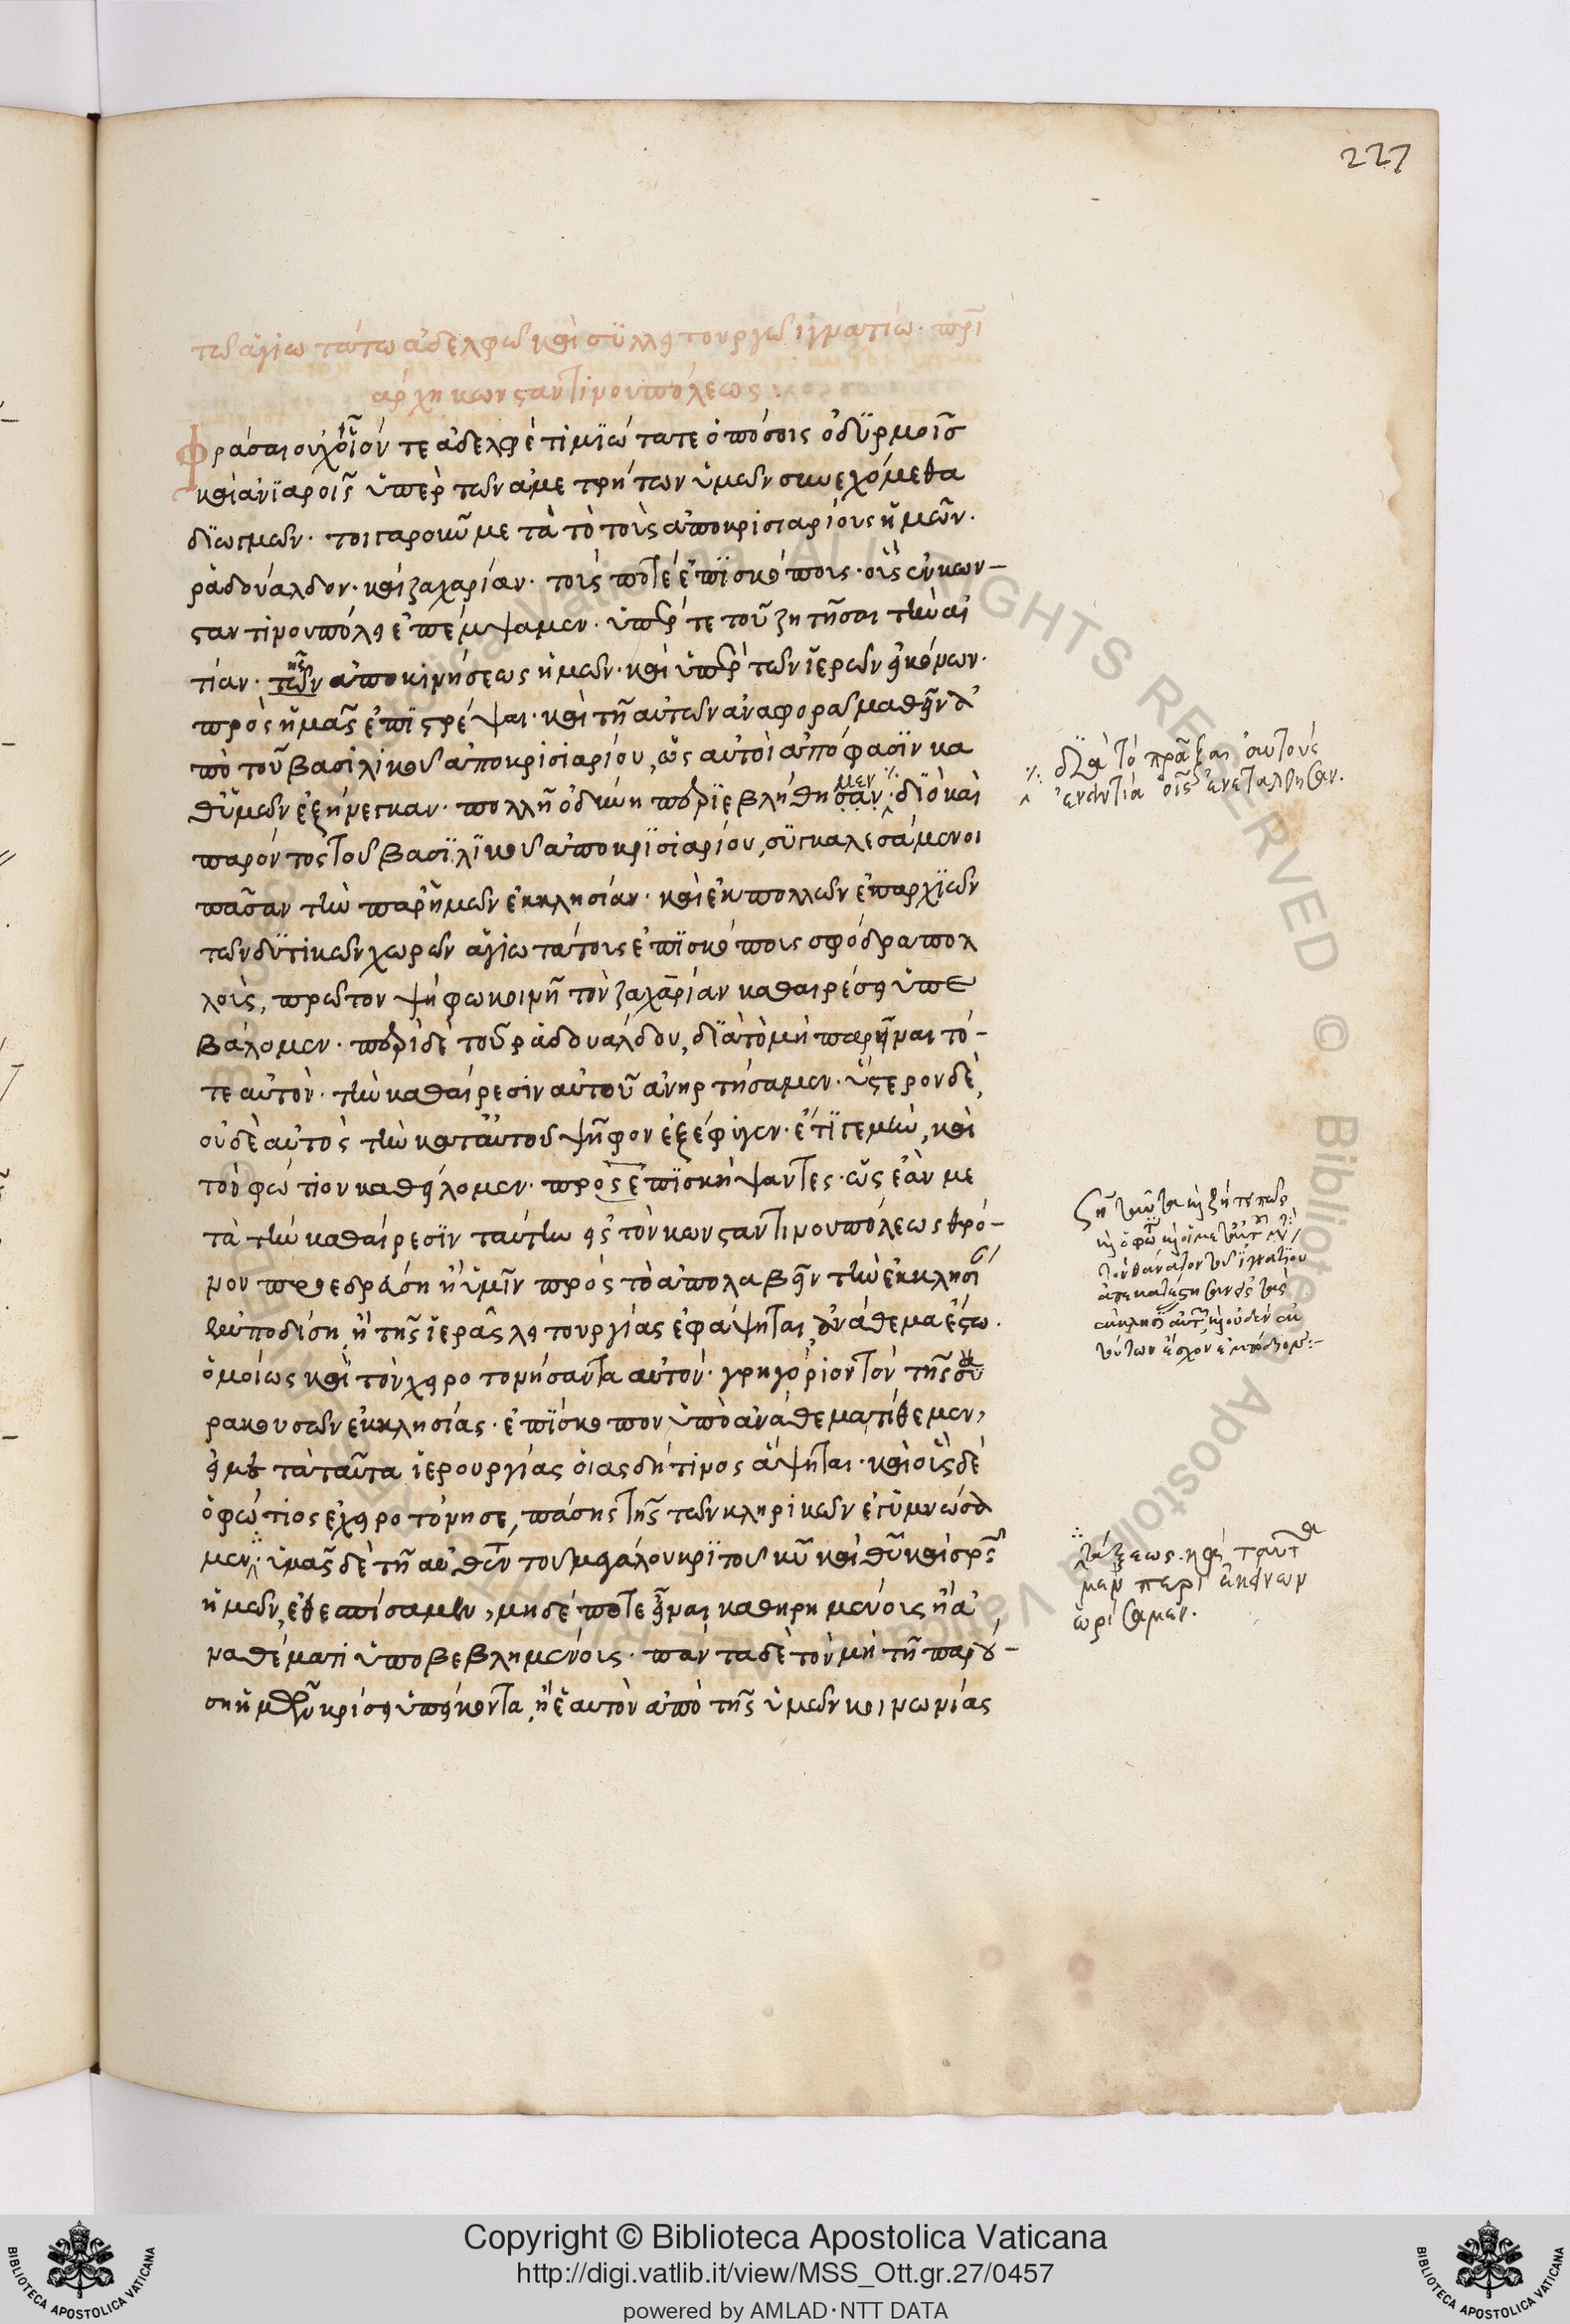 227
τῶ ἁγιωτάτω ἀδελφῶ καὶ συλλειτουργῶ ἰγνατίω. πρι
άρχη κωνσταντινουπόλεως.
Φράσαι οὐχ οἷόν τε ἀδελφὲ τιμϊώτατε ὁπόσοις ὀδϋρμοῖς
καὶ ἀνϊαροῖς ὑπὲρ τῶν ἀμετρήτων ὑμῶν συνεχόμεθα
διωγμῶν. τοιγαροῦν μετὰ τὸ τοὺς ἀποκρισιαρίους ἡμῶν.
ῥαδουάλδον. καὶ ζαχαρίαν. τοὺς ποτὲ ἐπϊσκόπους. οὓς ἐν κων-
σταντινουπόλει ἐπέμψαμεν. ὑπέρ τε τοῦ ζητῆσαι τὴν αἰ
τίαν. τῶν ἀποκινήσεως ἡμῶν. καὶ ὑπὲρ τῶν ἱερῶν εἰκόνων.
πρὸς ἡμᾶς ἐπϊστρέψαι. καὶ τῆ αὐτῶν ἀναφορᾶ μαθεῖν ἀ
πὸ τοῦ βασιλικοῦ ἀποκρισιαρίου, ὡς αὐτοὶ ἀπόφασϊν κα
θ' ὑμῶν ἐξήνεγκαν. πολλῆ ὀδύνη περϊεβλήθησαν. δϊὸ καὶ
μεν
παρόντος τοῦ βασϊλϊκοῦ ἀποκρϊσιαρίου, συγκαλεσάμενοι
πᾶσαν τὴν παρ' ἡμῶν ἐκκλησίαν. καὶ ἐκ πολλῶν ἐπαρχϊῶν
τῶν δϋτικῶν χωρῶν ἁγιωτάτοις ἐπϊσκόποις σφόδρα πολ
λοῖς, πρῶτον ψήφω κοινῆ τὸν ζαχαρίαν καθαιρέσει ὑπε
βάλομεν. περὶ δὲ τοῦ ῥαδουάλδου, δϊὰ τὸ μὴ παρεῖναι τό-
τε αὐτόν. τὴν καθαίρεσιν αὐτοῦ ἀνηρτήσαμεν. ὕστερον δὲ,
οὐδὲ αὐτὸς τὴν κατ' αὐτοῦ ψῆφον ἐξέφυγεν. ἔτϊ γε μὴν, καὶ
τὸν φώτιον καθείλομεν. προσεπϊσκήψαντες. ὡς ἐὰν με
τὰ τὴν καθαίρεσϊν ταύτην εἰς τὸν κωνσταντινουπόλεως θρό-
νον προεδράση ἢ ὑμῖν πρὸς τὸ ἀπολαβεῖν τὴν ἐκκλησί
ἐμποδίση, ἢ τῆς ἱερᾶς λειτουργίας ἐφάψηται, ἀνάθεμα ἔστω.
ὁμοίως καὶ τὸν χειροτονήσαντα αὐτόν. γρηγόριον τὸν τῆς συ
ρακουσῶν ἐκκλησίας. ἐπΐσκοπον ὑπὸ ἀνάθεμα τίθεμεν,
εἰ μετὰ ταῦτα ἱερουργίας οἱασδήτινος ἅψηται. καὶ οὓς δὲ
ὁ φώτιος ἐχειροτόνησε, πάσης τῆς τῶν κληρικῶν ἐγυμνώσα
μεν. ὑμᾶς δὲ τῆ αὐθεν τοῦ μεγάλου κρϊτοῦ κυ καὶ θυ καὶ σρς
ἡμῶν, ἐθεσπίσαμεν, μηδέποτε εἶναι καθηρημένοις ἢ ἀ
ναθέματι ὑποβεβλημένοις. πάντα δὲ τὸν μὴ τῆ παρού-
ση ἡμετέρα κρίσει ὑπείκοντα, ἢ ἑαυτὸν ἀπὸ τῆς ὑμῶν κοινωνίας
δϊὰ τὸ πρᾶξαι αὐτοὺς
ἐναντία οἷς ἐνετάλθησαν.
τάξεως. καὶ ταῦτα
μὲν περὶ ἐκείνων
ὡρίσαμεν.
Copyright © Biblioteca Apostolica Vaticana
http://digi.vatlib.it/view/MSS_Ott.gr.27/0457
powered by AMLAD·NTT DATA
BIBLIOTECA APOSTOLICA VATICANA
BIBLIOTECA APOSTOLICA VATICANA